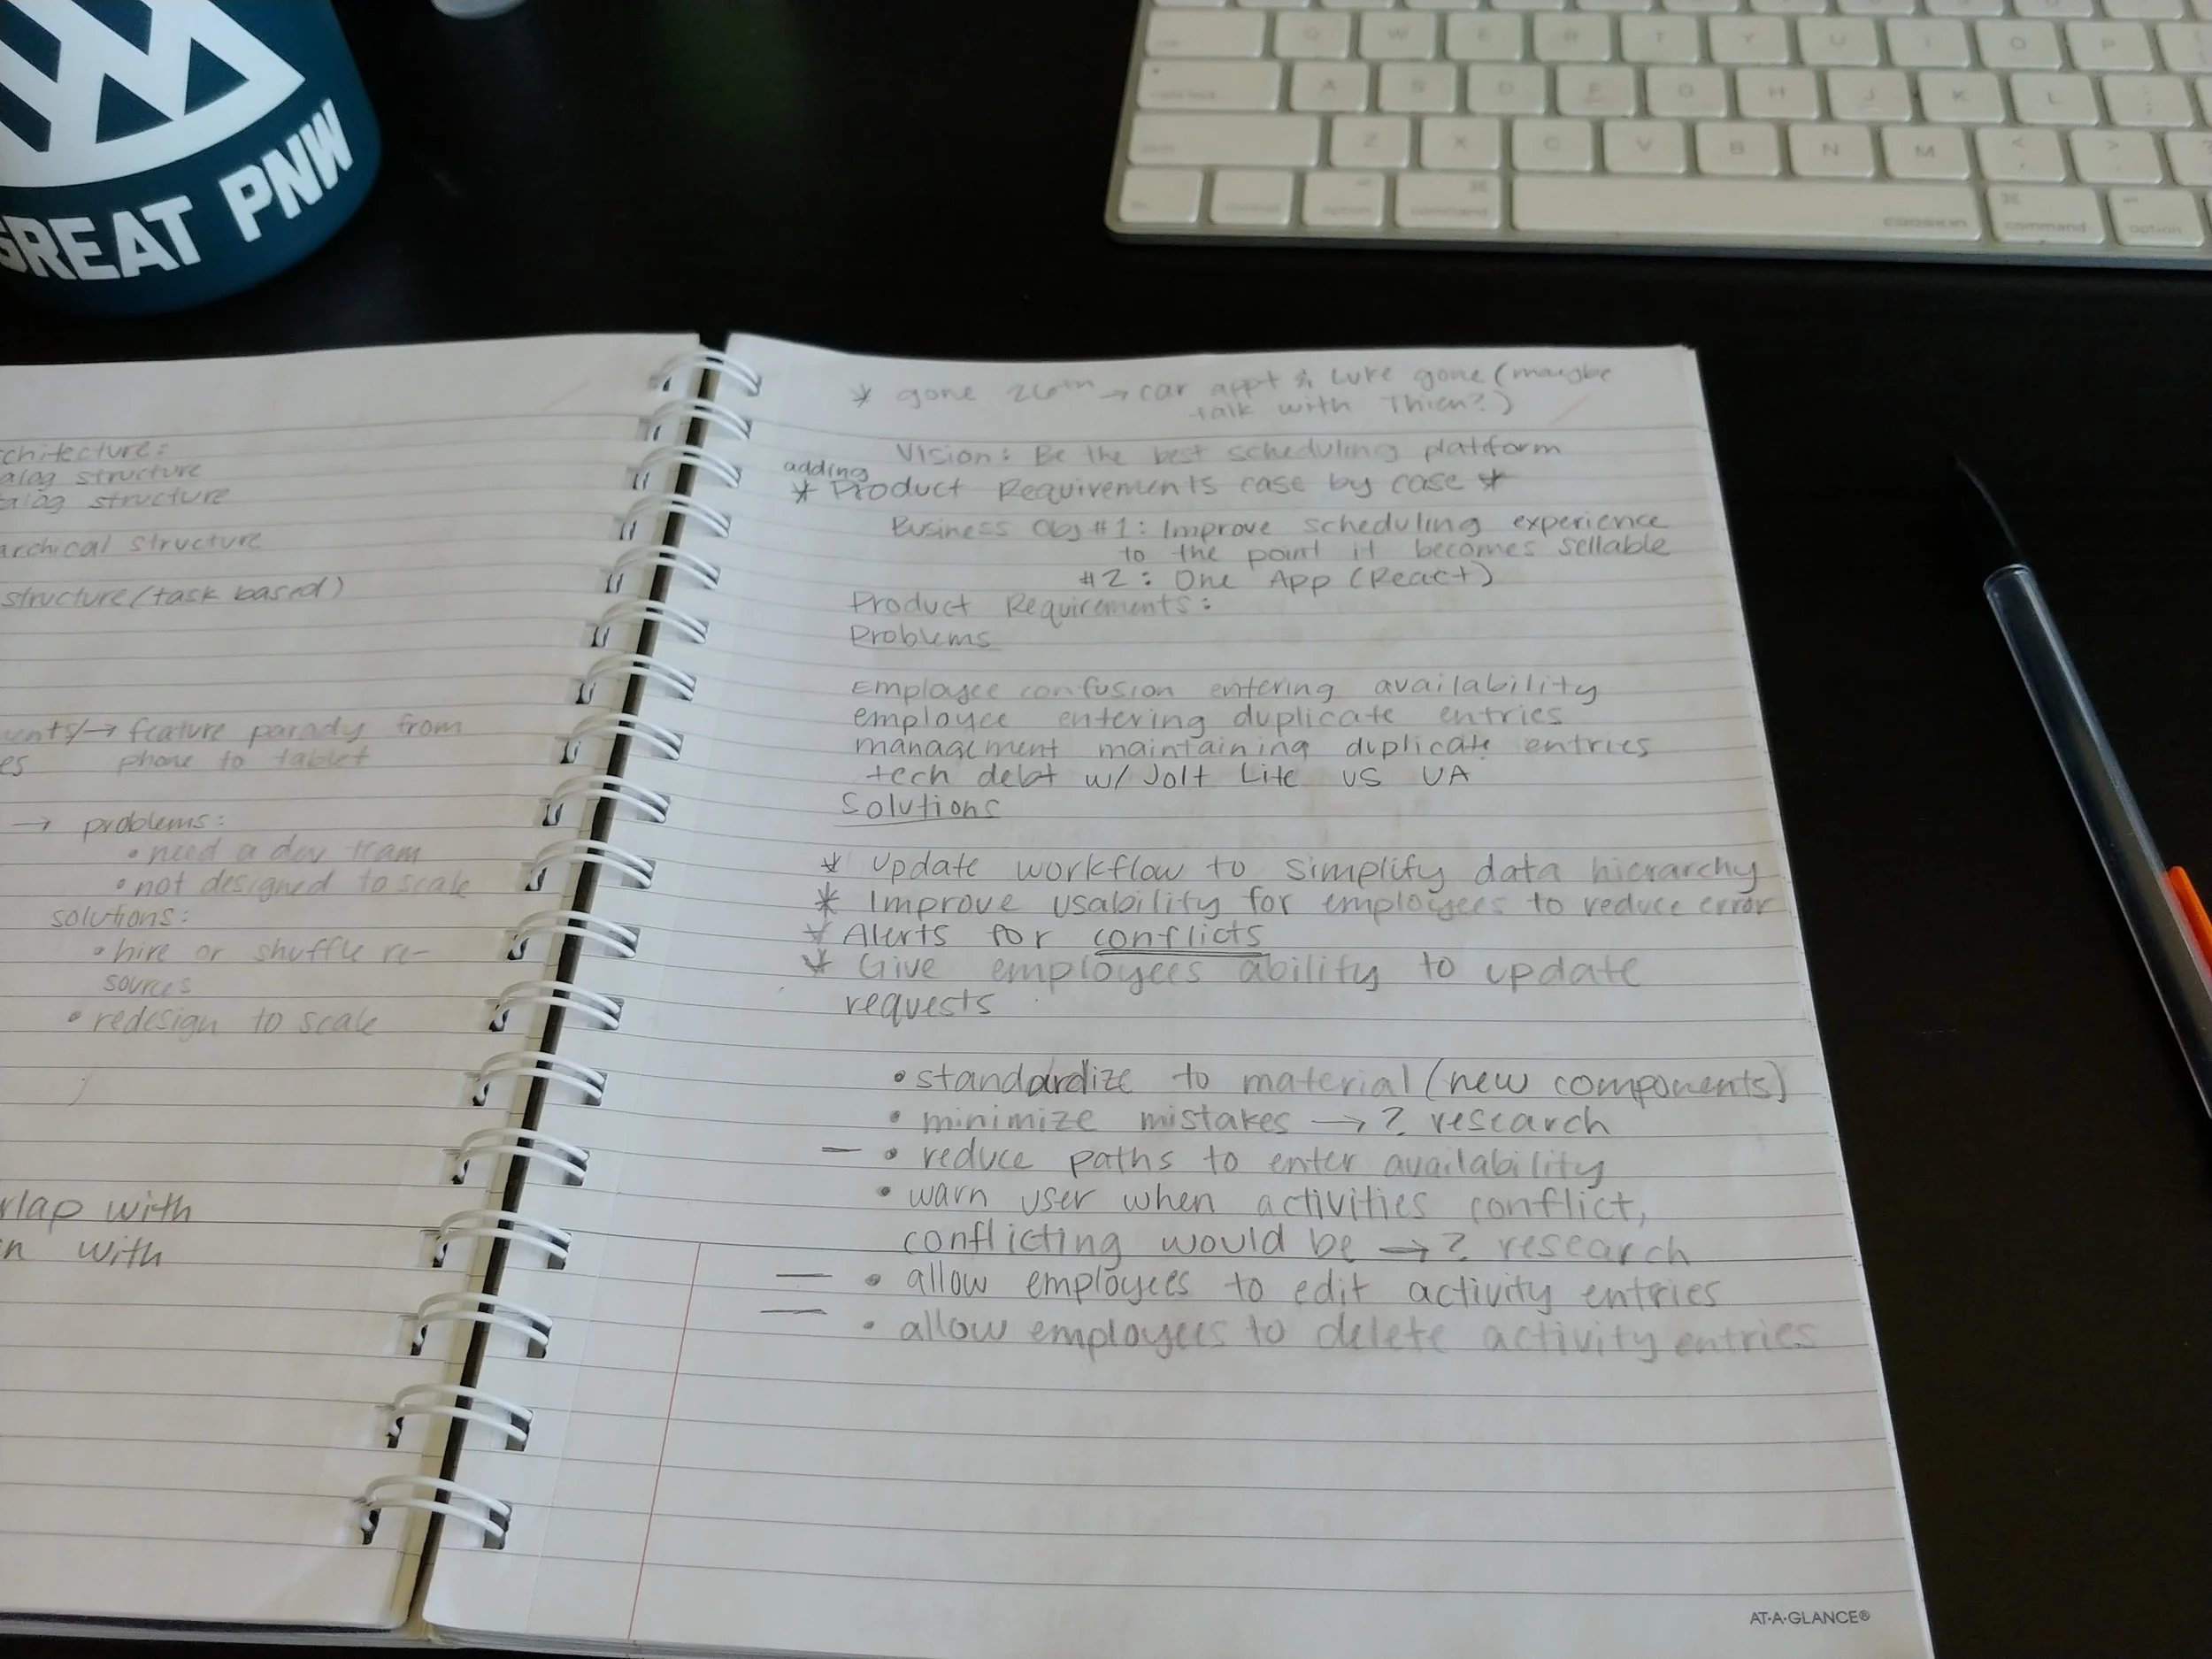 GREAT PNW
Q W E R T Y U I O P
A S D F G H J K L
Z X C V B N M
control option command cooskin command option
chitecture:
alog structure
alog structure
archical structure
structure (task based)
ents/→ feature parady from
es phone to tablet
→ problems:
• need a dev team
• not designed to scale
solutions:
• hire or shuffle re-
sources
• redesign to scale
rlap with
n with
* gone 26th → car appt & Luke gone (maybe
talk with Thien?)
Vision: Be the best scheduling platform
adding
* Product Requirements case by case *
Business Obj #1: Improve scheduling experience
to the point it becomes sellable
#2: One App (React)
Product Requirements:
Problems
Employee confusion entering availability
employee entering duplicate entries
management maintaining duplicate entries
tech debt w/ Jolt Lite vs UA
Solutions
* Update workflow to simplify data hierarchy
* Improve usability for employees to reduce error
* Alerts for conflicts
* Give employees ability to update
requests
• standardize to material (new components)
• minimize mistakes → ? research
— • reduce paths to enter availability
• warn user when activities conflict,
conflicting would be → ? research
— • allow employees to edit activity entries
— • allow employees to delete activity entries
AT-A-GLANCE®